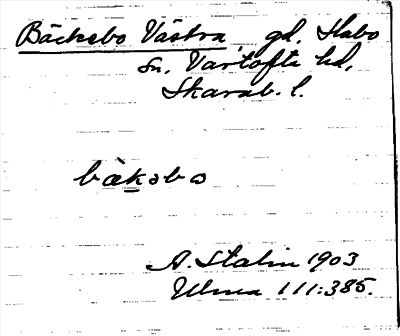 Bäckebo Västra gd. Habo
sn. Vartofta hd,
Skarab. l.
bäkəbo
A. Stalin 1903
Ulma 111:385.